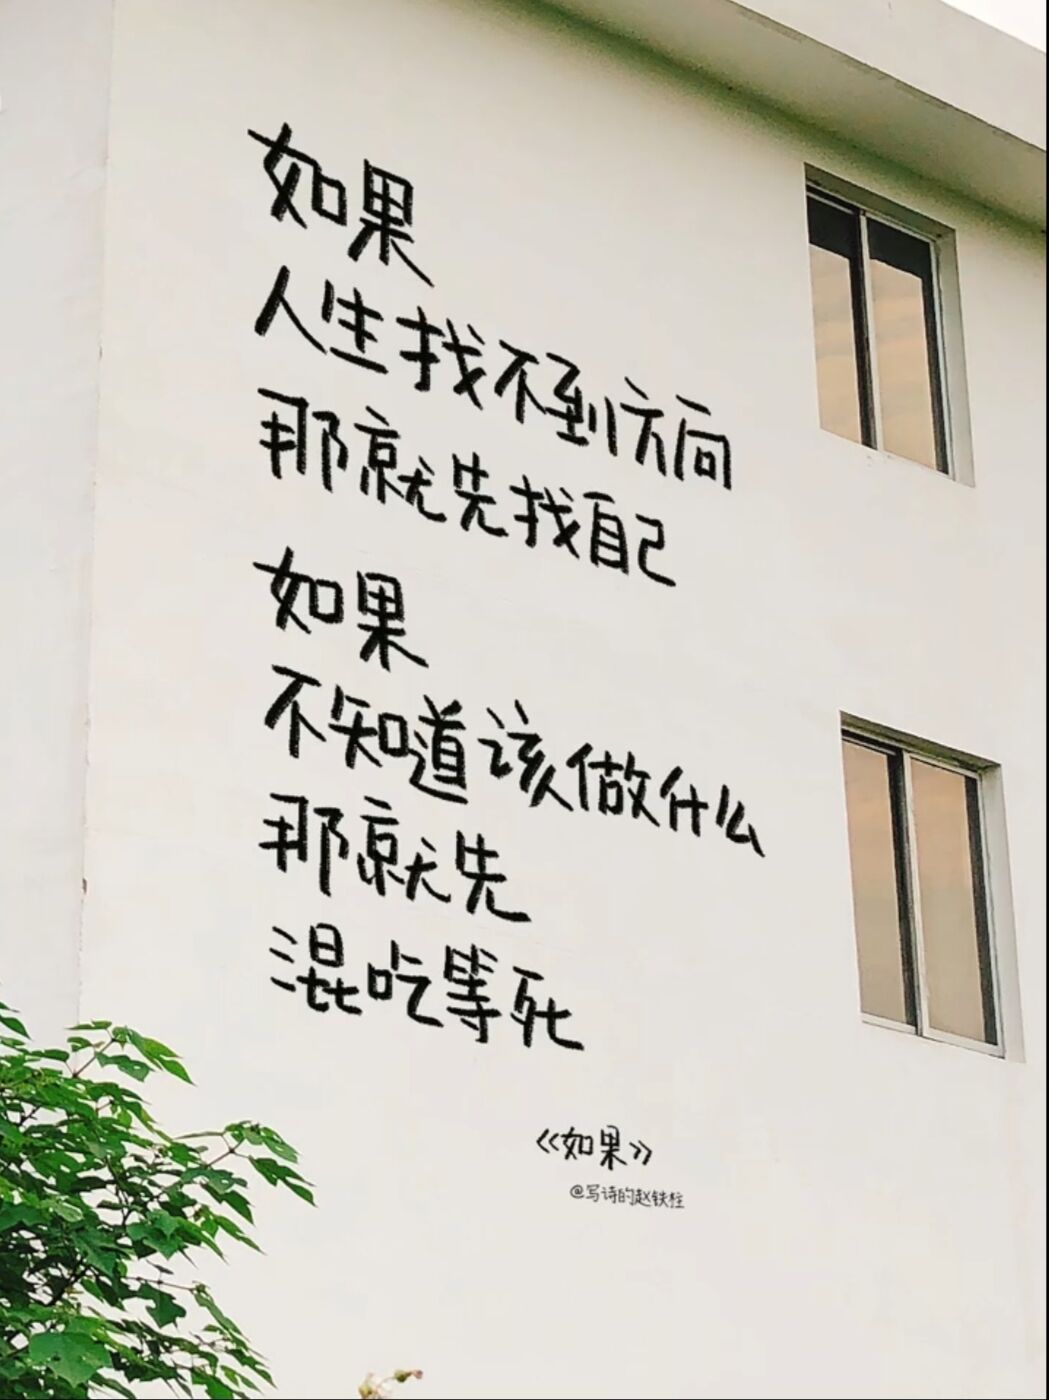 如果
人生找不到方向
那就先找自己
如果
不知道该做什么
那就先
混吃等死
《如果》
@写诗的赵铁柱